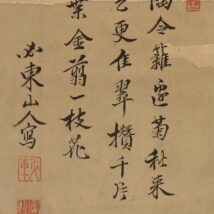 陶令籬邊菊秋來
色更佳翠攢千片
葉金剪一枝花
必東山人寫